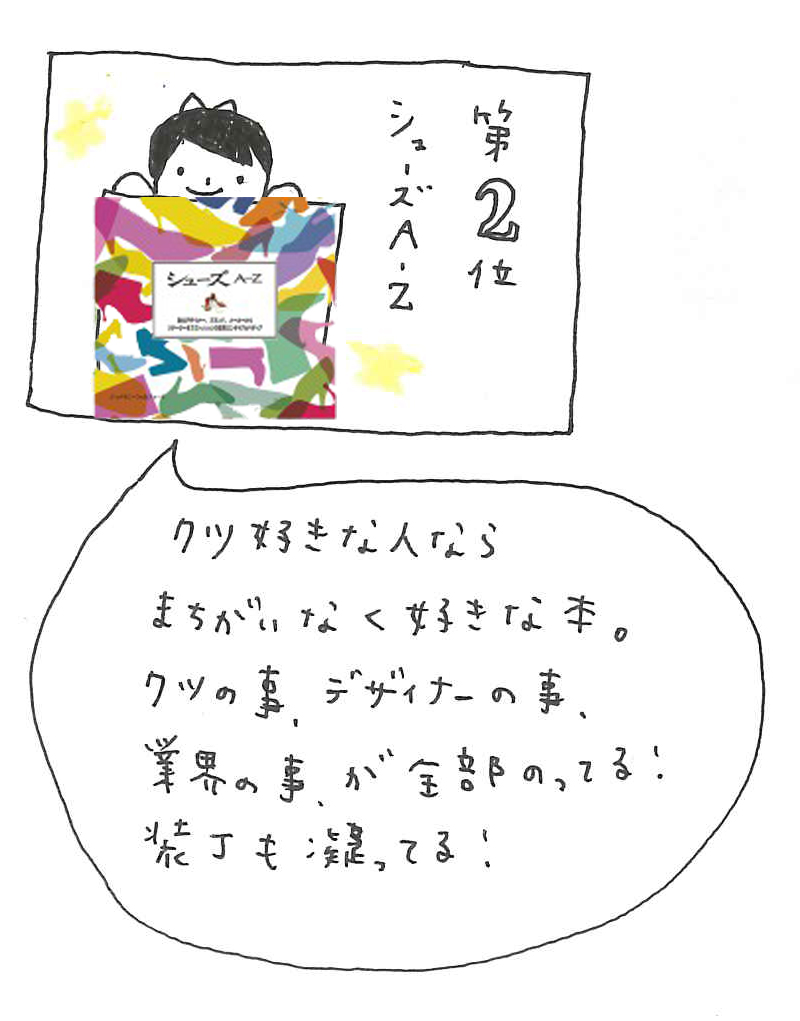 第2位
シューズA-Z
シューズ A-Z
クツ好きな人なら
まちがいなく好きな本。
クツの事、デザイナーの事、
業界の事、が全部のってる!
装丁も凝ってる!